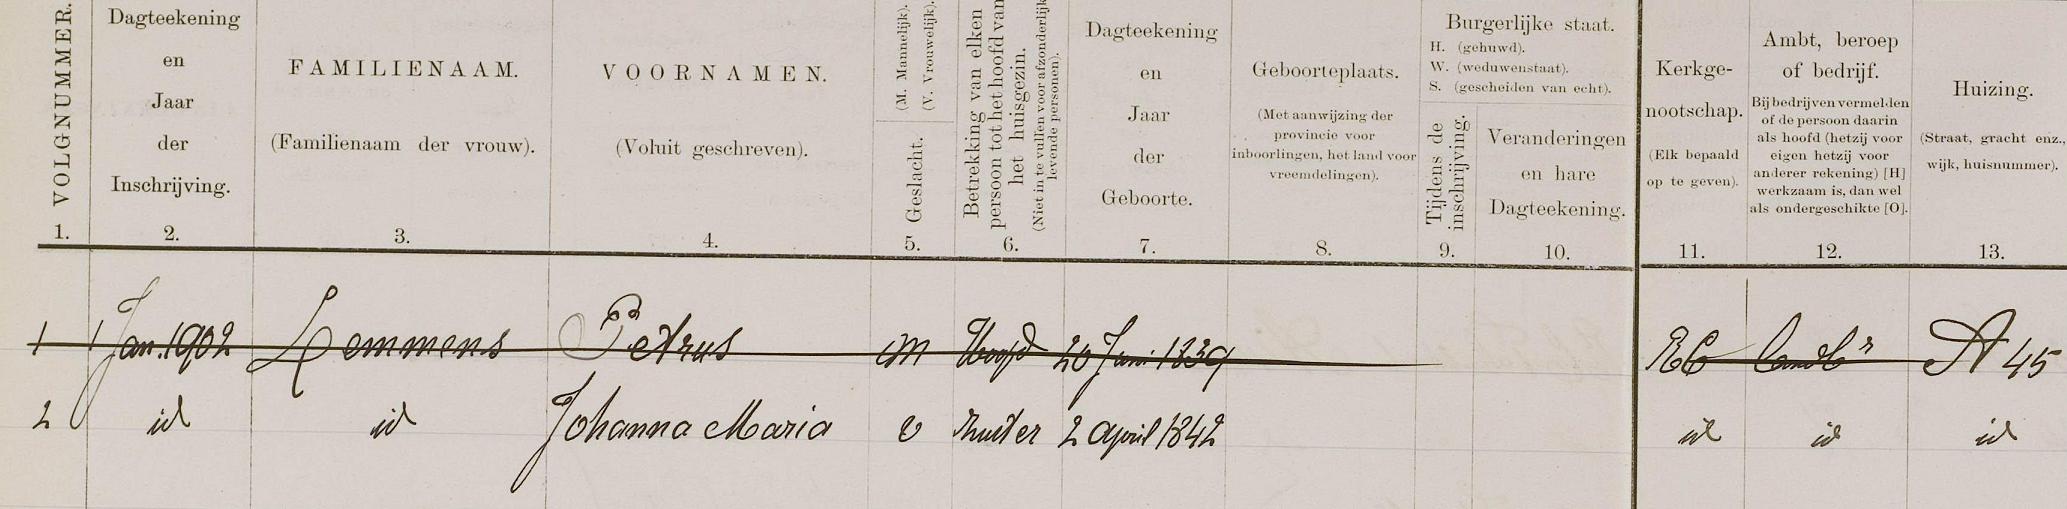 VOLGNUMMER.
1.
Dagteekening
en
Jaar
der
Inschrijving.
2.
FAMILIENAAM.
(Familienaam der vrouw).
3.
VOORNAMEN.
(Voluit geschreven).
4.
(M. Mannelijk).
(V. Vrouwelijk).
Geslacht.
5.
Betrekking van elken
persoon tot het hoofd van
het huisgezin.
(Niet in te vullen voor afzonderlijk
levende personen).
6.
Dagteekening
en
Jaar
der
Geboorte.
7.
Geboorteplaats.
(Met aanwijzing der
provincie voor
inboorlingen, het land voor
vreemdelingen).
8.
Burgerlijke staat.
H. (gehuwd).
W. (weduwenstaat).
S. (gescheiden van echt).
Tijdens de
inschrijving.
9.
Veranderingen
en hare
Dagteekening.
10.
Kerkge-
nootschap.
(Elk bepaald
op te geven).
11.
Ambt, beroep
of bedrijf.
Bij bedrijven vermelden
of de persoon daarin
als hoofd (hetzij voor
eigen hetzij voor
anderer rekening) [H]
werkzaam is, dan wel
als ondergeschikte [O].
12.
Huizing.
(Straat, gracht enz.,
wijk, huisnummer).
13.
1 1 Jan. 1902 Lemmens Petrus M Hoofd 20 Juni 1839 RC landbr A 45
2 id id Johanna Maria v zuster 2 April 1842 id id id